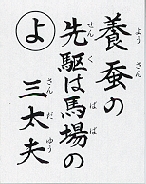 養蚕の
ようさん
先駆は馬場の
せんく ばば
よ
三太夫
さんだゆう